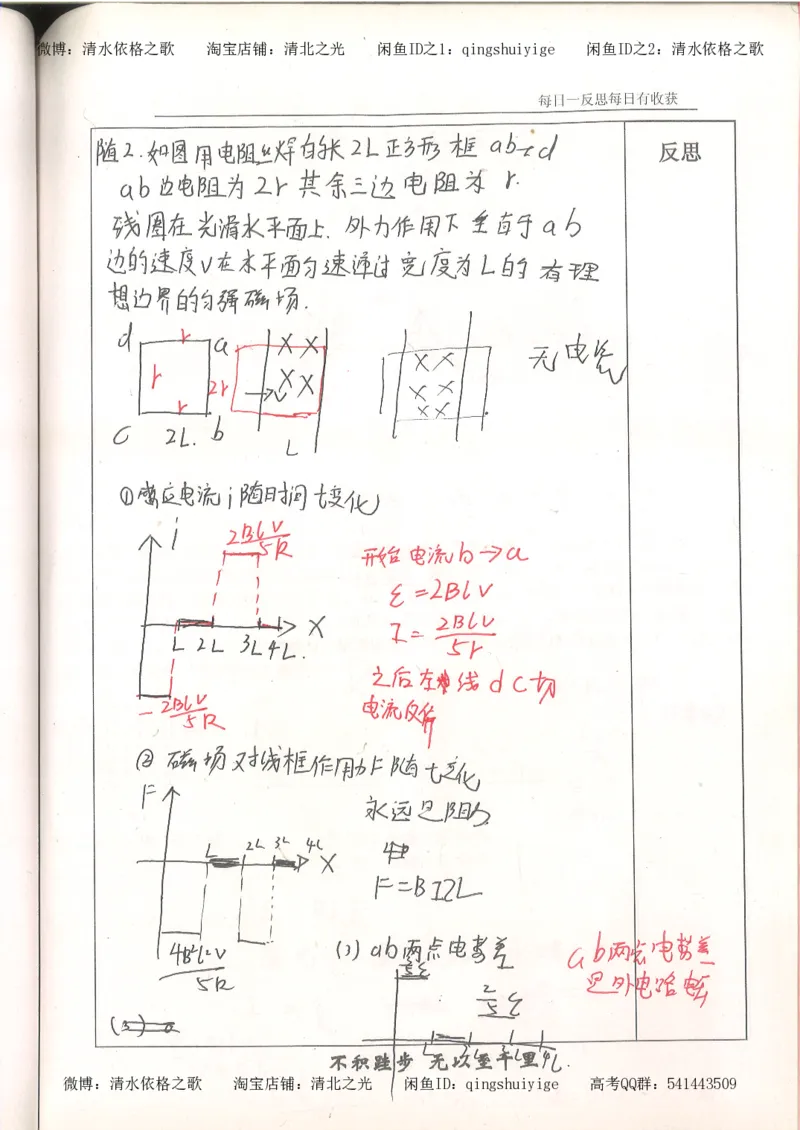 微博：清水依格之歌 淘宝店铺：清北之光 闲鱼ID之1：qingshuiyige 闲鱼ID之2：清水依格之歌
每日一反思每日有收获
随2.如图用电阻丝焊的长2L正方形框abcd
反思
ab边电阻为2r其余三边电阻为r.
线圈在光滑水平面上.外力作用下垂直于ab
边的速度v在水平面匀速通过宽度为L的有理
想边界的匀强磁场.
d r a
r 2r
r
c 2L. b
→v
L
无电流
①感应电流i随时间t变化
i
2BLV/5R
L 2L 3L 4L. X
-2BLV/5R
开始电流b→a
ε=2BLV
I=2BLV/5r
之后左边线dc切
电流反
②磁场对线框作用力F随t变化
F
L 2L 3L 4L X
4B²L²V/5R
永远是阻力
F=BI2L
(3)ab两点电势差
3/5ε
2/5ε
L 2L 3L 4L.
ab两点电势差
是外电路电压
不积跬步 无以至千里
微博：清水依格之歌 淘宝店铺：清北之光 闲鱼ID：qingshuiyige 高考QQ群：541443509